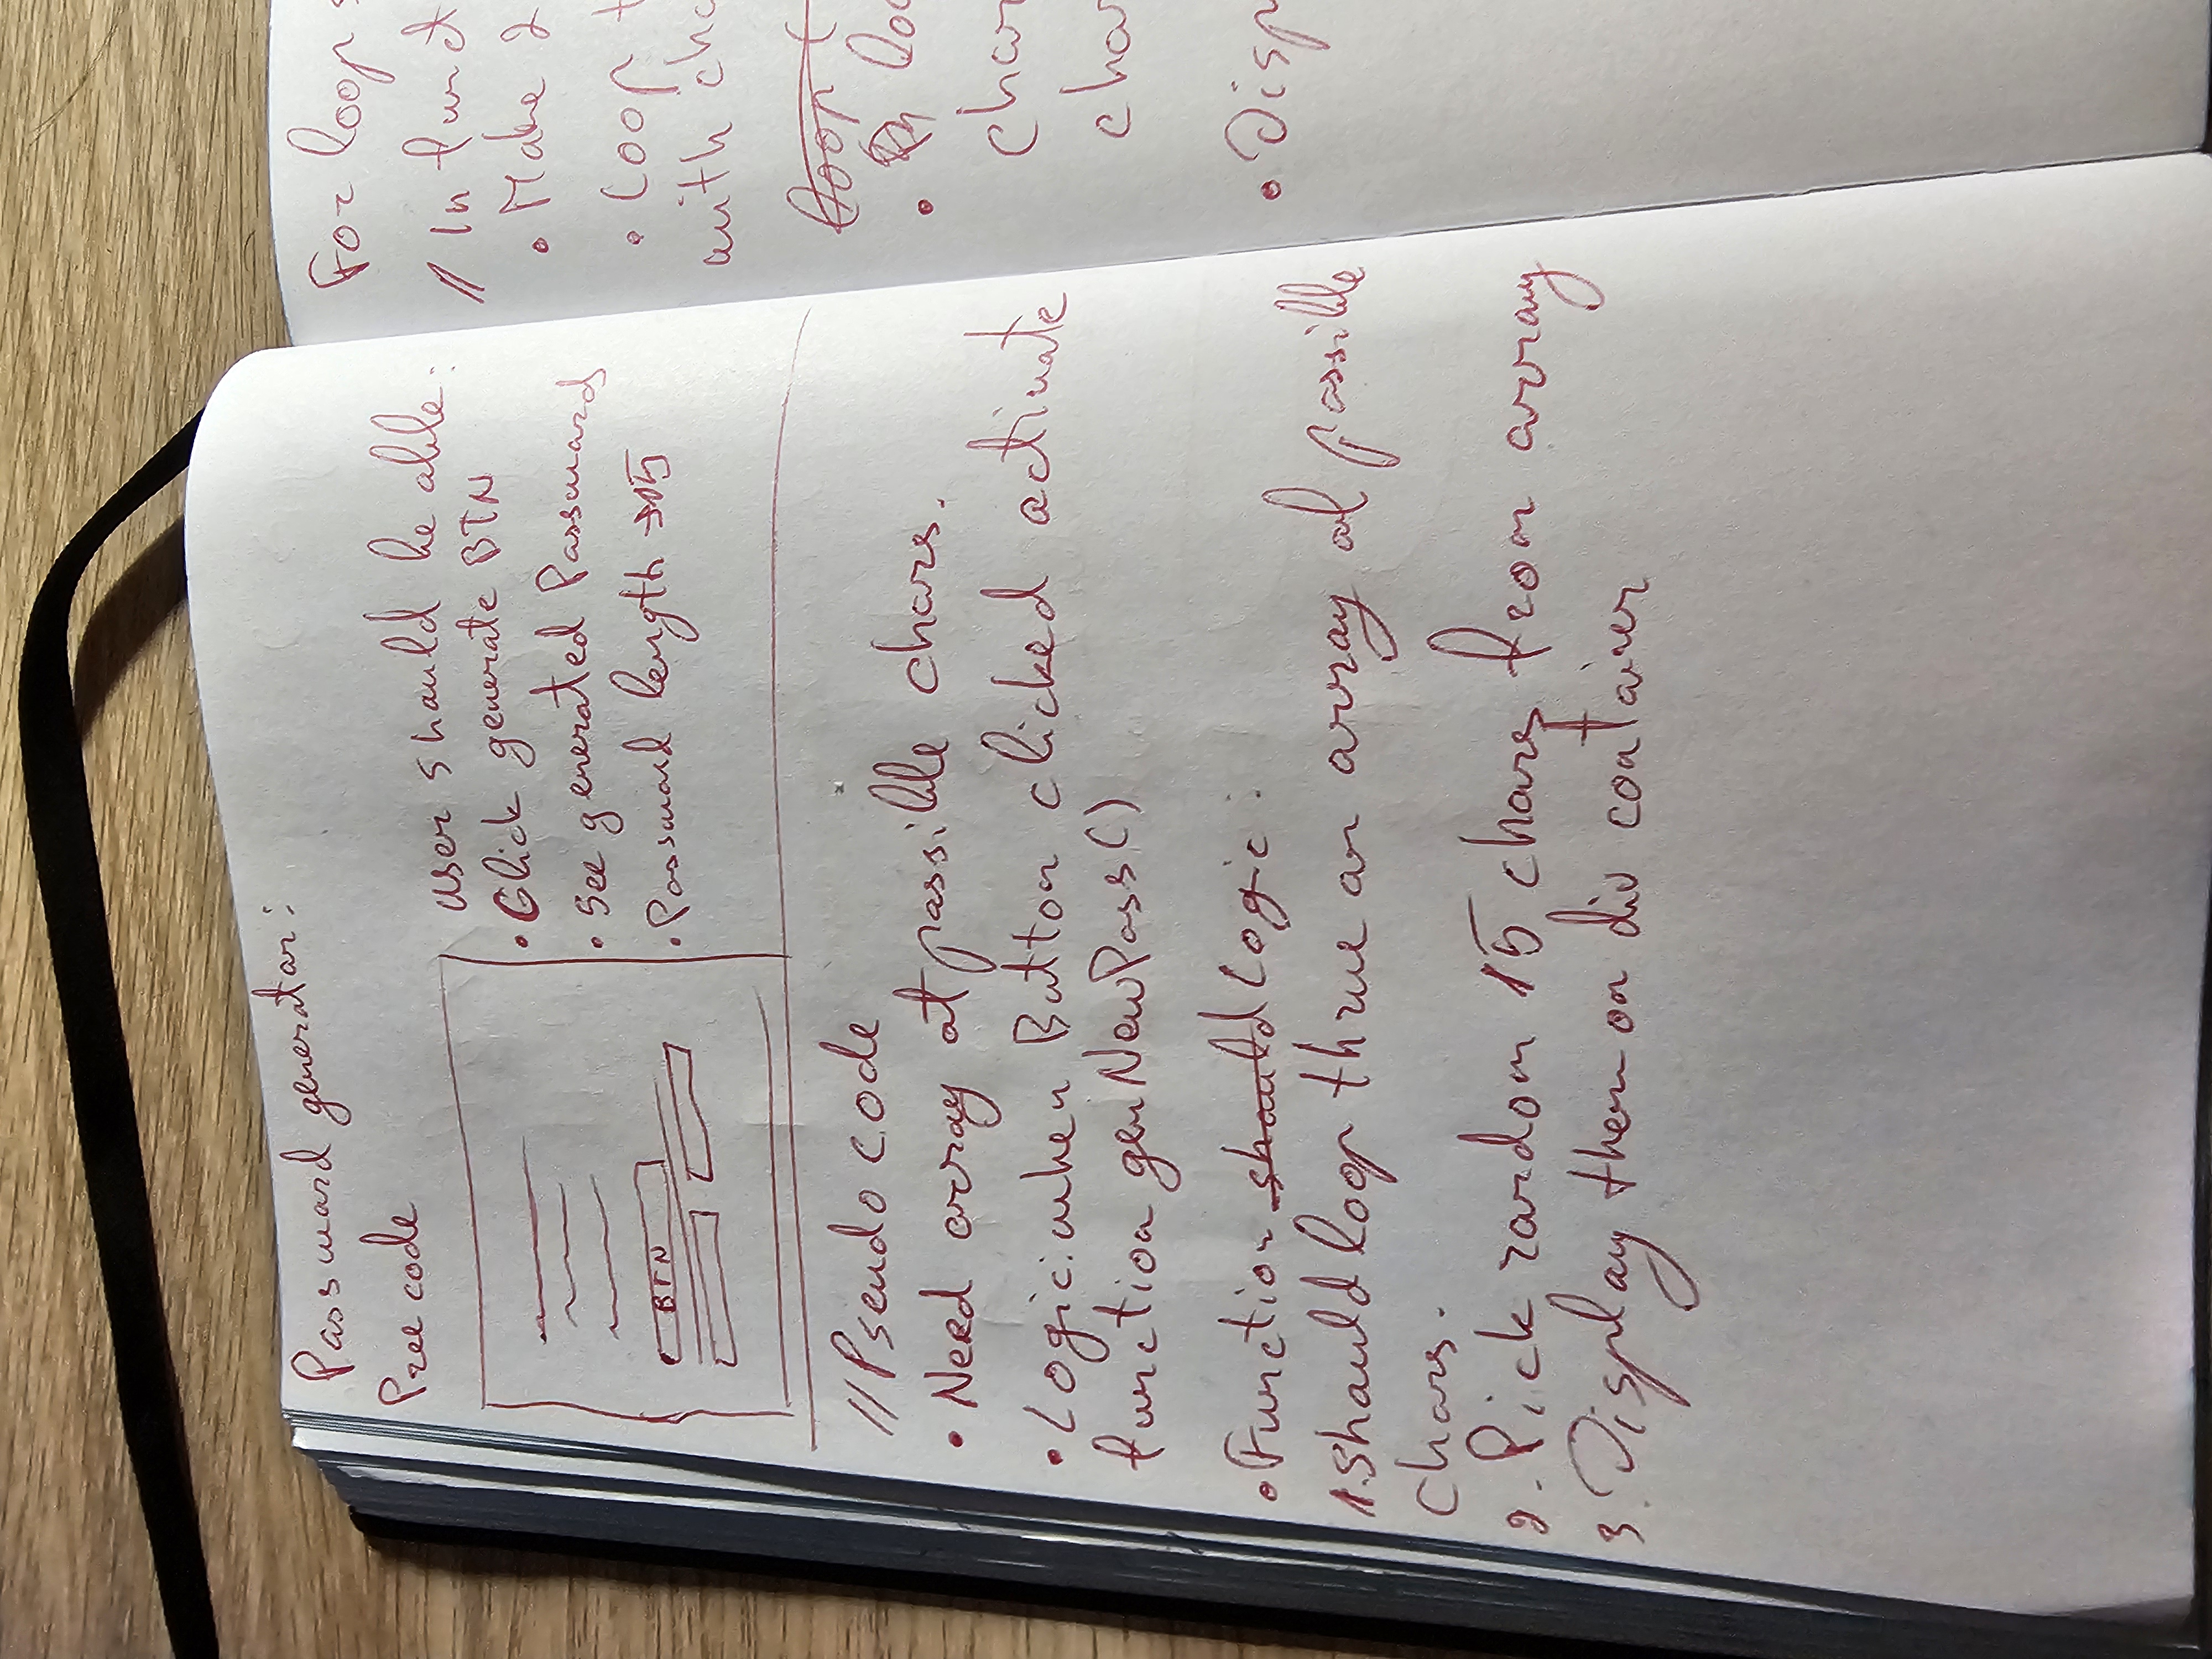 Password generator:
Pree code
User should be able:
• Click generate BTN
• See generated Passwords
• Password length → 15
BTN
// Pseudo code
• Need array of possible chars.
• Logic: when Button clicked activate
function genNewPass()
• Function should Logic:
1. Should loop thrue an array of possible
chars.
2. Pick random 15 chars from array
3. Display them on div container
For loop
// In funct
• Make 2
• Loop t
with cha
loop (
• loo
char
char
• Disp